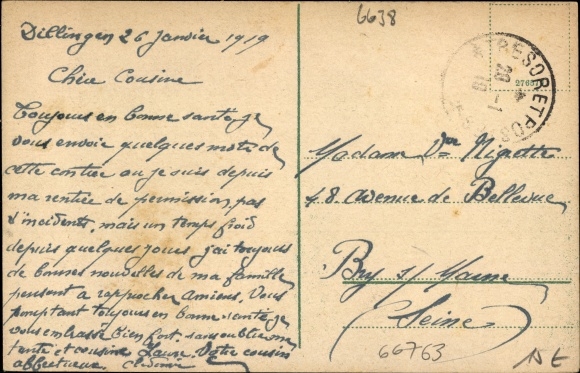 Dillingen 26 Janvier 1919
Chère Cousine
Toujours en bonne santé, je
vous envoie quelques mots de
cette contrée ou je suis depuis
ma rentrée de permission, pas
d'incidents, mais un temps froid
depuis quelques jours j'ai toujours
de bonnes nouvelles de ma famille
pensent à rapprocher Amiens. Vous
 toujours en bonne santé, je
vous embrasse bien fort, sans oublier ma
tante et cousine Laure. Votre cousin
affectueux
6638
TRESOR ET POSTES
20 -1 19
27687
Madame Vve Nigette
48 avenue de Bellevue
Bry s/ Marne
(Seine)
66763